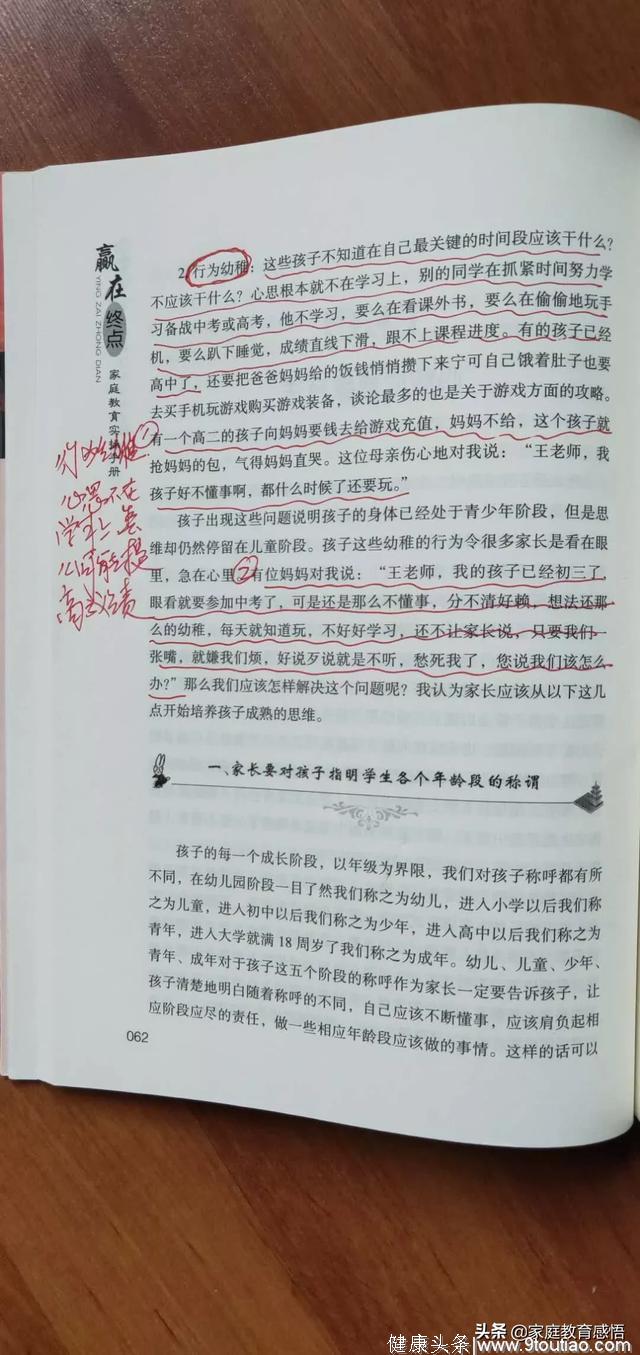 赢在终点
YING ZAI ZHONG DIAN
家庭教育实操手册
2. 行为幼稚：这些孩子不知道在自己最关键的时间段应该干什么？
不应该干什么？心思根本就不在学习上，别的同学在抓紧时间努力学
习备战中考或高考，他不学习，要么在看课外书，要么在偷偷地玩手
机，要么趴下睡觉，成绩直线下滑，跟不上课程进度。有的孩子已经
高中了，还要把爸爸妈妈给的饭钱悄悄攒下来宁可自己饿着肚子也要
去买手机玩游戏购买游戏装备，谈论最多的也是关于游戏方面的攻略。
有一个高二的孩子向妈妈要钱去给游戏充值，妈妈不给，这个孩子就
抢妈妈的包，气得妈妈直哭。这位母亲伤心地对我说：“王老师，我
孩子好不懂事啊，都什么时候了还要玩。”
孩子出现这些问题说明孩子的身体已经处于青少年阶段，但是思
维却仍然停留在儿童阶段。孩子这些幼稚的行为令很多家长是看在眼
里，急在心里②有位妈妈对我说：“王老师，我的孩子已经初三了，
眼看就要参加中考了，可是还是那么不懂事，分不清好赖，想法还那
么的幼稚，每天就知道玩，不好好学习，还不让家长说，只要我们一
张嘴，就嫌我们烦，好说歹说就是不听，愁死我了，您说我们该怎么
办？”那么我们应该怎样解决这个问题呢？我认为家长应该从以下这几
点开始培养孩子成熟的思维。
行为幼稚①
心思不在
学习上 怎
么可能提
高
一、家长要对孩子指明学生各个年龄段的称谓
孩子的每一个成长阶段，以年级为界限，我们对孩子称呼都有所
不同，在幼儿园阶段一目了然我们称之为幼儿，进入小学以后我们称
之为儿童，进入初中以后我们称之为少年，进入高中以后我们称之为
青年，进入大学就满 18 周岁了我们称之为成年。幼儿、儿童、少年、
青年、成年对于孩子这五个阶段的称呼作为家长一定要告诉孩子，让
孩子清楚地明白随着称呼的不同，自己应该不断懂事，应该肩负起相
应阶段应尽的责任，做一些相应年龄段应该做的事情。这样的话可以
062
头条 @家庭教育感悟
健康头条 www.9toutiao.com